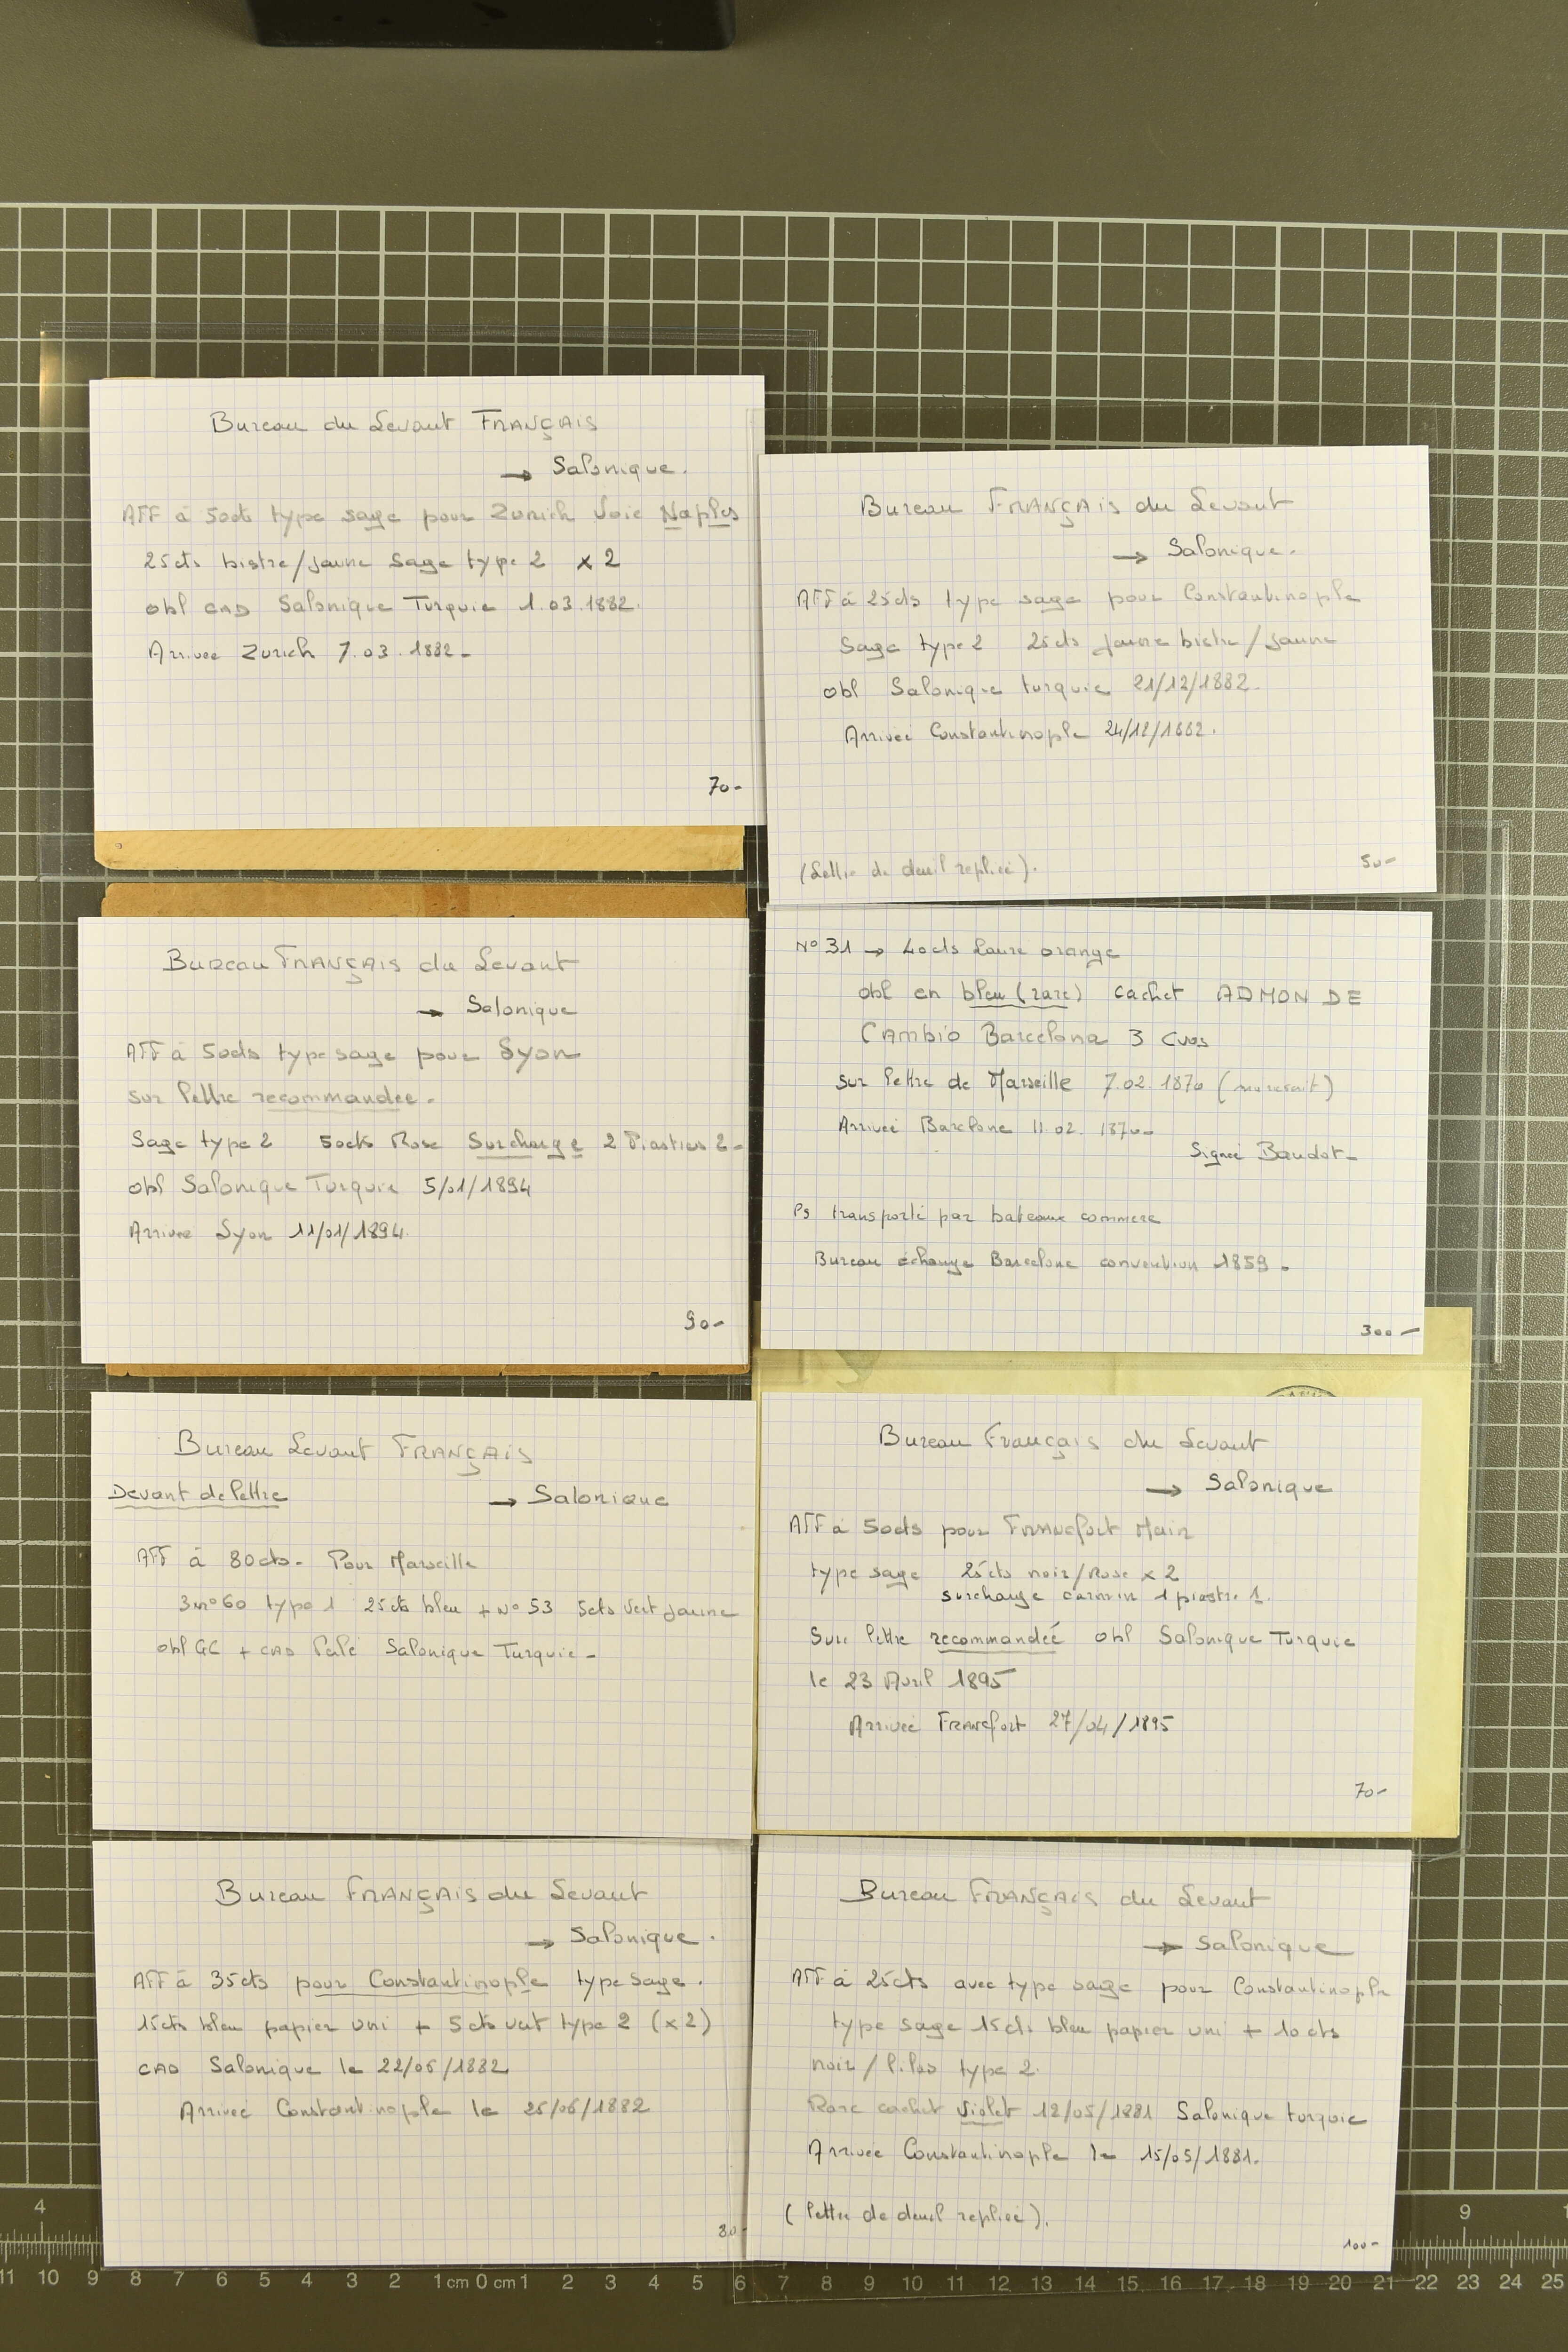 Bureau du Levant FRANÇAIS
→ Salonique.
AFF à 50cts type sage pour Zurich Voie Naples
25cts bistre/jaune Sage type 2 x 2
obl CAD Salonique Turquie 1.03.1882.
Arrivée Zurich 7.03.1882-
70-
Bureau FRANÇAIS du Levant
→ Salonique.
AFF à 25cts type sage pour Constantinople
Sage type 2 25cts jaune bistre/jaune
obl Salonique turquie 21/12/1882-
Arrivée Constantinople 24/12/1882.
(Lettre de deuil repliée).
50-
Bureau FRANÇAIS du Levant
→ Salonique
AFF à 50cts type sage pour Lyon
sur lettre recommandée.
Sage type 2 50cts Rose Surcharge 2 Piastres 2-
obl Salonique Turquie 5/01/1894
Arrivée Lyon 11/01/1894.
90-
N° 31 → 40cts Laure orange
obl en bleu (rare) cachet ADMON DE
CAMBIO Barcelona 3 Cvos
sur lettre de Marseille 7.02.1870
Arrivée Barcelone 11.02.1870-
Signée Baudot-
Ps transporté par bateaux commerce
Bureau échange Barcelone convention 1859-
300-
Bureau Levant FRANÇAIS
Devant de lettre → Salonique
AFF à 80cts- Pour Marseille
3 n° 60 type 1 25cts bleu + N° 53 5cts Vert jaune
obl GC + CAD Pale Salonique Turquie-
Bureau Français du Levant
→ Salonique
AFF à 50cts pour FRANCfort Main
type sage 25cts noir/Rose x 2
surcharge carmin 1 piastre 1.
Sur lettre recommandée obl Salonique Turquie
le 23 Avril 1895
Arrivée FRANCfort 27/04/1895
70-
Bureau FRANÇAIS du Levant
→ Salonique.
AFF à 35cts pour Constantinople type sage.
15cts bleu papier uni + 5cts vert type 2 (x2)
CAD Salonique le 22/06/1882
Arrivée Constantinople le 25/06/1882
80-
Bureau FRANÇAIS du Levant
→ Salonique
AFF à 25cts avec type sage pour Constantinople
type sage 15cts bleu papier uni + 10 cts
noir/lilas type 2.
Rare cachet Violet 12/05/1881 Salonique turquie
Arrivée Constantinople le 15/05/1881.
(lettre de deuil repliée).
100-
4 9
11 10 9 8 7 6 5 4 3 2 1 cm 0 cm 1 2 3 4 5 6 7 8 9 10 11 12 13 14 15 16 17 18 19 20 21 22 23 24 25